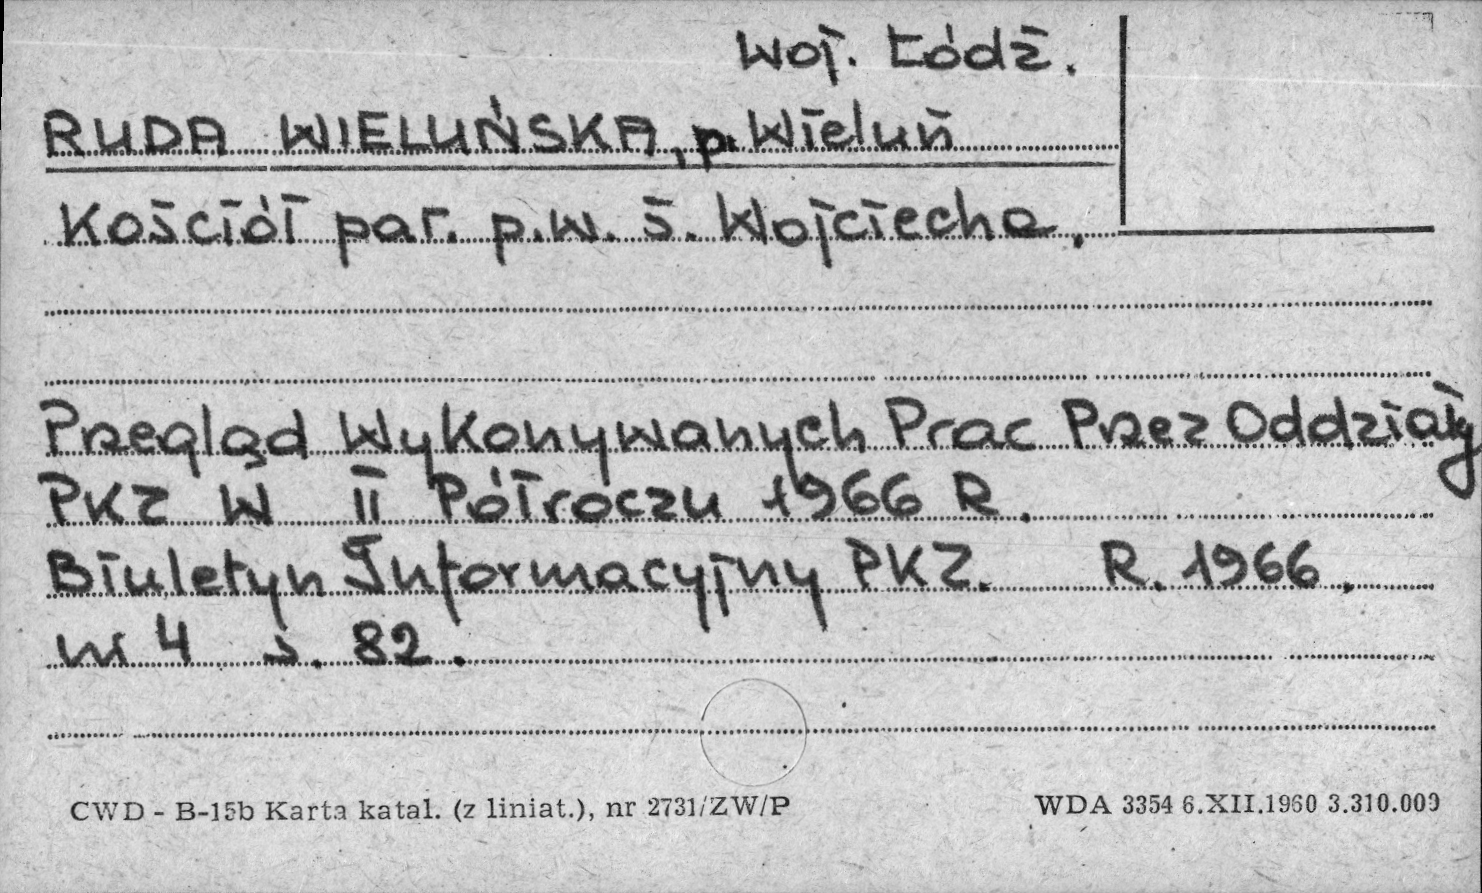 woj. Łódź.
RUDA WIELUŃSKA, p. Wieluń
Kościół par. p.w. ś. Wojciecha,
Przegląd Wykonywanych Prac Przez Oddziały
PKZ W II Półroczu 1966 R.
Biuletyn Informacyjny PKZ. R. 1966,
nr 4 s. 82.
CWD - B-15b Karta katal. (z liniat.), nr 2731/ZW/P
WDA 3354 6.XII.1960 3.310.000